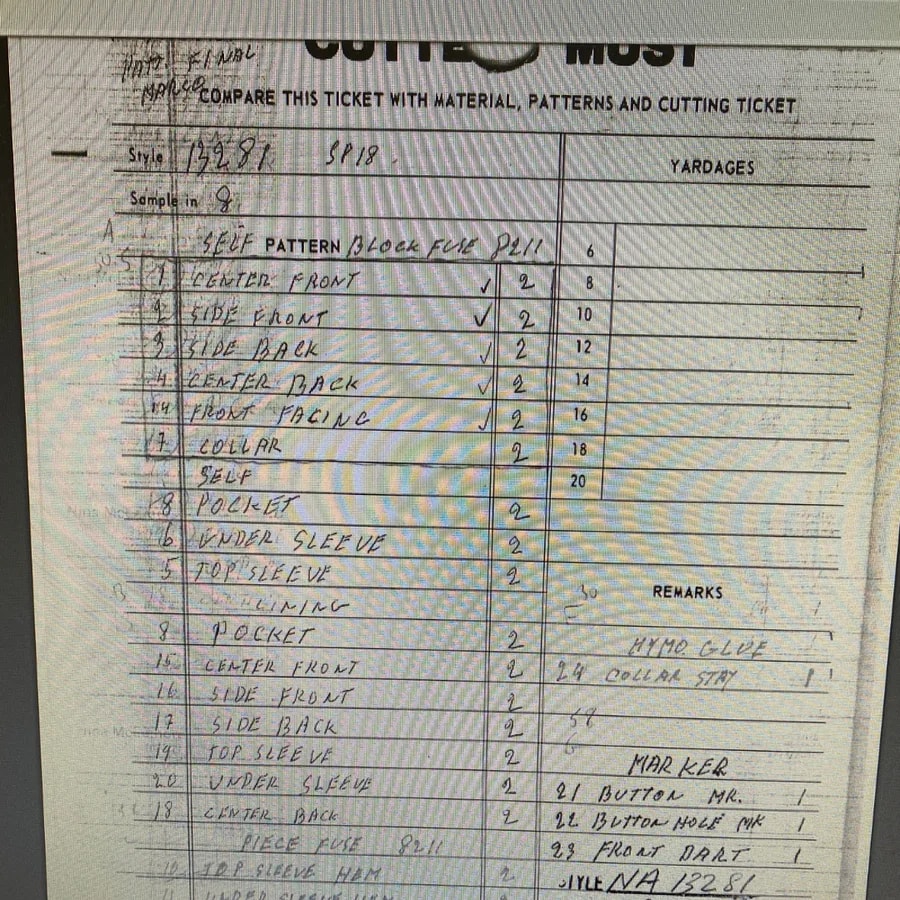 FINAL
MARCO
MUST
COMPARE THIS TICKET WITH MATERIAL, PATTERNS AND CUTTING TICKET
Style 13281 SP18
Sample in 8
A
SELF PATTERN BLOCK FUSE 8211
1 CENTER FRONT ✓ 2
2 SIDE FRONT ✓ 2
3 SIDE BACK ✓ 2
4 CENTER BACK ✓ 2
14 FRONT FACING ✓ 2
7 COLLAR 2
SELF
8 POCKET 2
6 UNDER SLEEVE 2
5 TOP SLEEVE 2
B
LINING
8 POCKET 2
15 CENTER FRONT 2
16 SIDE FRONT 2
17 SIDE BACK 2
19 TOP SLEEVE 2
20 UNDER SLEEVE 2
18 CENTER BACK 2
PIECE FUSE 8211
10 TOP SLEEVE HEM 2
11 UNDER SLEEVE HEM 2
YARDAGES
6
8
10
12
14
16
18
20
REMARKS
HYMO GLUE 1
24 COLLAR STAY 1
58
6
MARKER
21 BUTTON MK. 1
22 BUTTON HOLE MK 1
23 FRONT DART 1
STYLE NA 13281